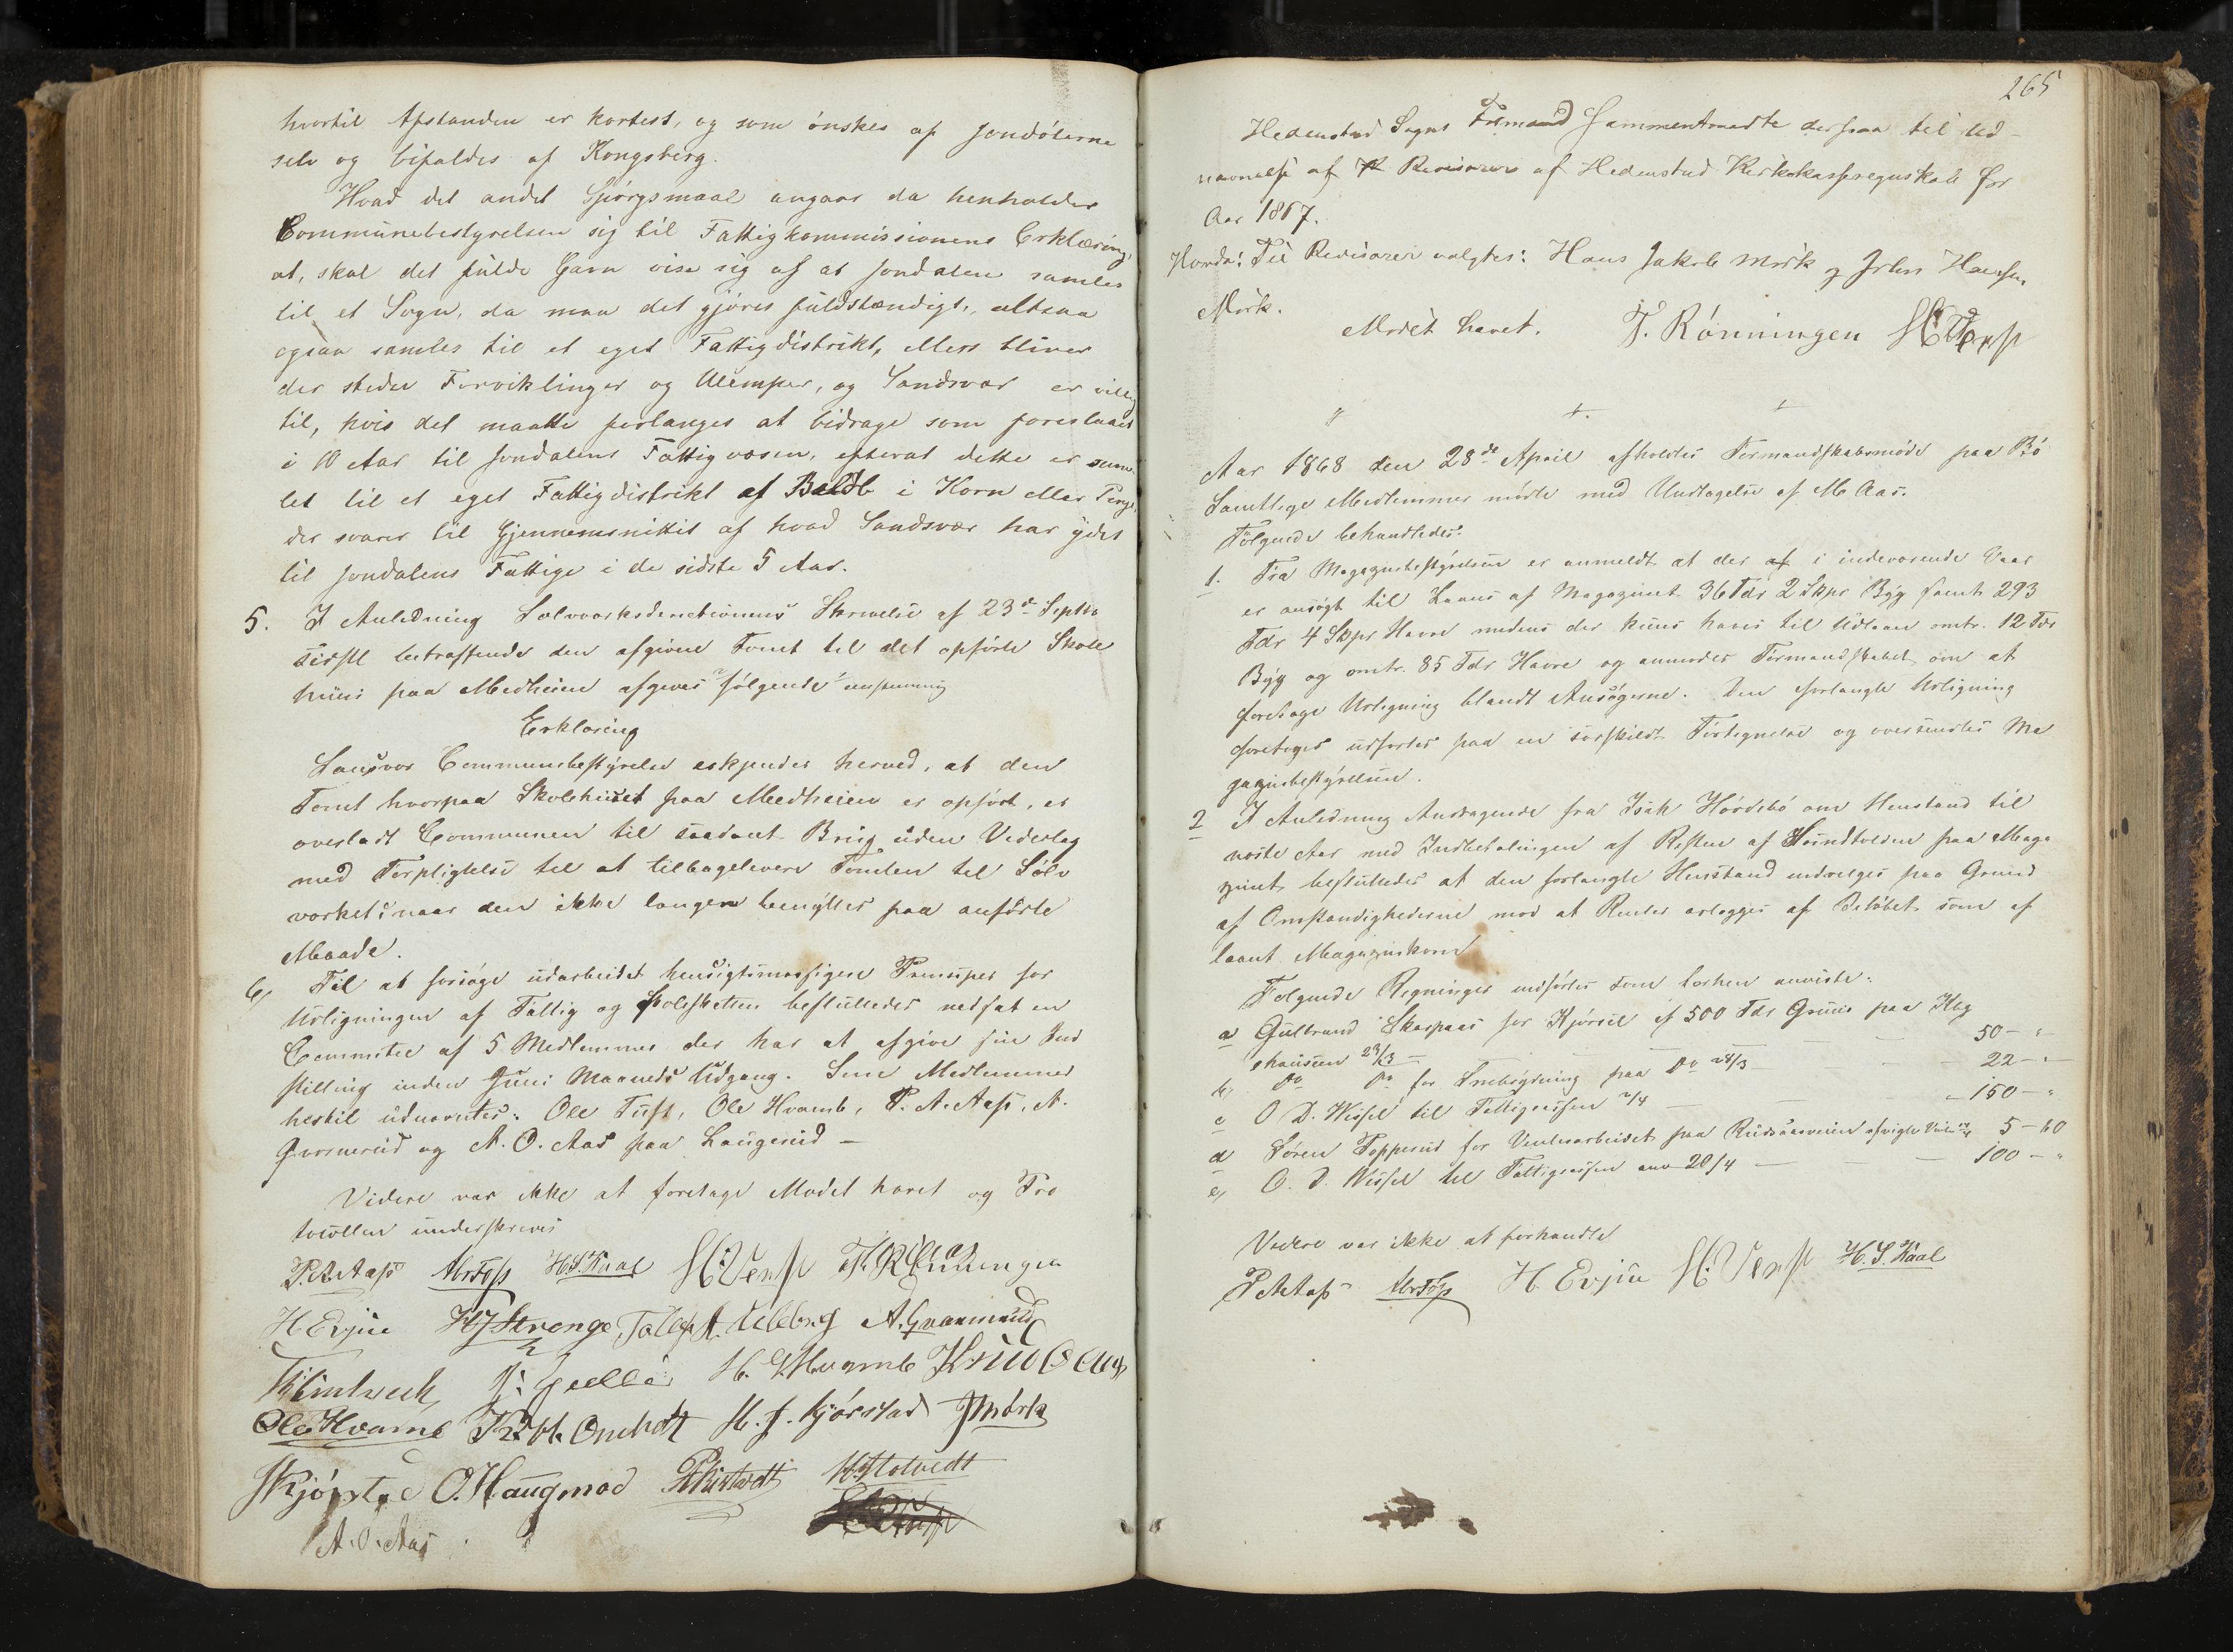 hvortil Afstanden er kortest, og som ønskes af Jondølerne
selv og bifaldes af Kongsberg.
Hvad det andet Spørgsmaal angaar da henholder
Communebestyrelsen sig til Fattigkommissionens Erklæring,
at, skal det fulde Gavn vise sig af at Jondalen samles
til et Sogn, da maa det gjøres fuldstændigt, altsaa
ogsaa samles til et eget Fattigdistrikt, ellers bliver
der steder Forviklinger og Ulemper, og Sandsvær er villig
til, hvis det maatte forlanges at bidrage som foreslaaet
i 10 Aar til Jondalens Fattigvæsen, efterat dette er sam
let til et eget Fattigdistrikt af Beløb i Korn eller Penge,
der svarer til Gjennemsnittet af hvad Sandsvær har ydet
til Jondalens Fattige i de sidste 5 Aar.
5. I Anledning Sølvværksdirectionens Skrivelse af 23de Septbr
sidstl betræffende den afgivne Tomt til det opførte Skole
huus paa Medheien afgives følgende
Erklæring
Sandsvær Communebestyrelse erkjender herved, at den
Tomt hvorpaa Skolehuset paa Medheien er opført, er
overladt Communen til saadant Brug uden Vederlag
med Forpligtelse til at tilbagelevere Tomten til Sølv
værket: naar den ikke længer benyttes paa anførte
Maade.
6, Til at forsøge udarbeidet hensigtsmæssigere Principer for
Udligningen af Fattig og Skoleskatten besluttedes nedsat en
Committee af 5 Medlemmer der har at afgive sin Ind
stilling inden Juni Maaneds Udgang. Som Medlemmer
hertil udnævntes: Ole Tuft, Ole Hvamb, P. A. Aas, A.
Gvarnerud og A. O. Aas paa Laugerud –
Videre var ikke at foretage Mødet hævet og Pro
tocollen underskreves
P. A. Aas H. S. Kaal H. Venss T. Rønningen
H Evju H J Strenge A. Gvarnerud
H. G. Hvamb Knud
Ole Hvamb H. J. Kjørstad J Mørk
Kjørstad O. Haugmoe
A. O. Aas
265
Hedenstad Sogns Formænd Sammentraadte derpaa til Ud-
nævnelse af Revisorer af Hedenstad Kirkekasseregnskab for
Aar 1867.
Hvorda: Til Revisorer valgtes: Hans Jakob Mørk og John Hansen
Mørk.
Mødet hævet. T. Rønningen H Venss
Aar 1868 den 28de April afholdtes Formandskabsmøde paa Bø
Samtlige Medlemmer mødte med Undtagelse af M Aas.
Følgende behandledes:
1. Fra Magazinbestyrelsen er anmeldt at der af i indeværende Vaar
er ansøgt til Laans af Magazinet 36 Tdr 2 Skpr Byg samt 293
Tdr 4 Skpr Havre medens der kuns haves til Udlaan omtr. 12 Tdr
Byg og omtr. 85 Tdr Havre og anmodes Formandskabet om at
foretage Udligning blandt Ansøgerne. Den forlangte Udligning
foretoges udførtes paa en særskildt Fortegnelse og oversendtes Ma
gazinbestyrelsen.
2 I Anledning Andragende fra Isak Hørdebø om Henstand til
næste Aar med Indbetalingen af Resten af Hundtveden paa Maga
zinet besluttedes at den forlangte Henstand indvilges paa Grund
af Omstændighederne mod at Renter erlægges af Beløbet som af
laant Magazinkorn
Følgende Regninger indførtes som forhen anviste:
a Gulbrand Skarpaas for Kjørsel af 500 Tdr Gruus paa Kbg
chauseen 23/3 – 50 – "
b, Do Do for Snebrydning paa Do 28/3 22 – "
c O D. Wessel til Fattigcassen 2/4 – 150 – "
d Søren Topperud for Veiarbeidet paa 5 – 60
e, O. D. Wessel til Fattigcassen anv 20/4 – 100 – "
Videre var ikke at forhandle
P A Aas H. Evju H. Venss H. S. Kaal